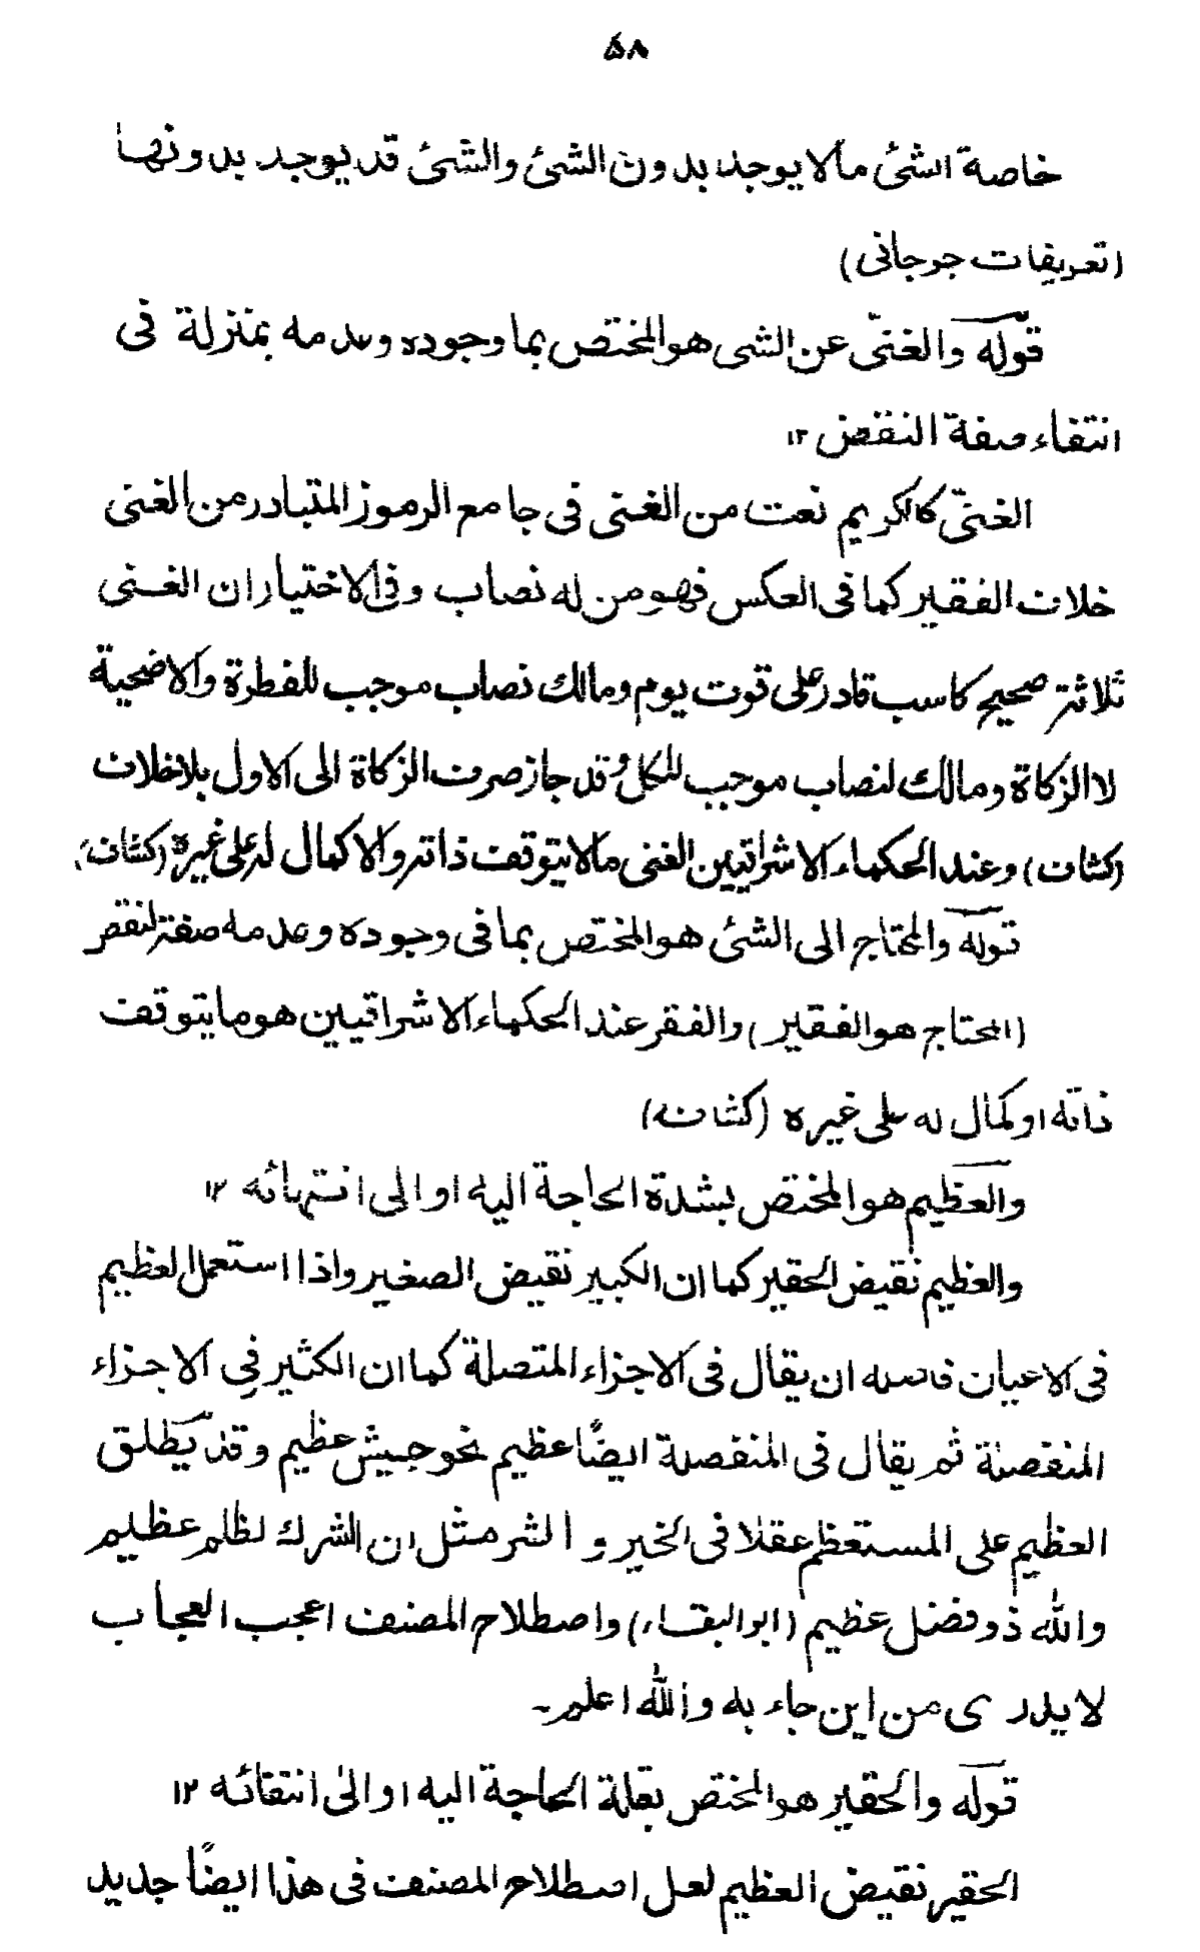 ۵۸
خاصة الشئ مالا يوجد بدون الشئ والشئ قد يوجد بدونها
(تعريفات جرجانى)
قوله والغنىّ عن الشى هو المختص بما وجوده وعدمه بمنزلة فى
انتفاء صفة النقض ۱۲
الغنىّ كالكريم نعت من الغنى فى جامع الرموز المتبادر من الغنى
خلاف الفقير كما فى العكس فهو من له نصاب وفى الاختيار ان الغنى
ثلاثة صحيح كاسب قادر على قوت يوم ومالك نصاب موجب للفطرة والاضحية
لا الزكاة ومالك لنصاب موجب للكل وقد جاز صرف الزكاة الى الاول بلاخلاف
(كشاف) وعند الحكماء الاشراقيين الغنى مالا يتوقف ذاته والاكمال له على غيره (كشاف)
قوله والمحتاج الى الشئ هو المختص بما فى وجوده وعدمه صفة لنقص
(المحتاج هو الفقير) والفقر عند الحكماء الاشراقيين هو ما يتوقف
ذاته او كمال له على غيره (كشاف)
والعظيم هو المختص بشدة الحاجة اليه او الى انتهائه ۱۲
والعظيم نقيض الحقير كما ان الكبير نقيض الصغير واذا استعمل العظيم
فى الاعيان فاصله ان يقال فى الاجزاء المتصلة كما ان الكثير فى الاجزاء
المنفصلة ثم يقال فى المنفصلة ايضًا عظيم نحو جيش عظيم وقد يطلق
العظيم على المستعظم عقلا فى الخير و الشر مثل ان الشرك لظلم عظيم
والله ذو فضل عظيم (ابو البقاء) واصطلاح المصنف اعجب العجاب
لا يدرى من اين جاء به والله اعلم۔
قوله والحقير هو المختص بقلة الحاجة اليه او الى انتفائه ۱۲
الحقير نقيض العظيم لعل اصطلاح المصنف فى هذا ايضًا جديد